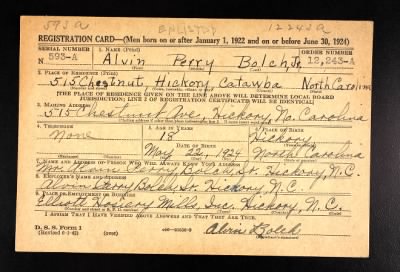 593A ENLISTED 12243A
REGISTRATION CARD—(Men born on or after January 1, 1922 and on or before June 30, 1924)
SERIAL NUMBER 1. NAME (Print) ORDER NUMBER
593-A Alvin Perry Bolch, Jr. 12,243-A
2. PLACE OF RESIDENCE (Print)
515 Chestnut, Hickory Catawba North Carolina
[THE PLACE OF RESIDENCE GIVEN ON THE LINE ABOVE WILL DETERMINE LOCAL BOARD
JURISDICTION; LINE 2 OF REGISTRATION CERTIFICATE WILL BE IDENTICAL]
3. MAILING ADDRESS
515 Chestnut Ave, Hickory, No. Carolina
4. TELEPHONE 5. AGE IN YEARS 6. PLACE OF BIRTH
None 18 Hickory
DATE OF BIRTH
May 1924 North Carolina
7. NAME AND ADDRESS OF PERSON WHO WILL ALWAYS KNOW YOUR ADDRESS
Perry Bolch, Sr. Hickory, N.C.
8. EMPLOYER'S NAME AND ADDRESS
Alvin Perry Bolch, Sr. Hickory, N.C.
9. PLACE OF EMPLOYMENT OR BUSINESS
Elliott Hosiery Mills, Inc. Hickory, N.C.
I AFFIRM THAT I HAVE VERIFIED ABOVE ANSWERS AND THAT THEY ARE TRUE.
D. S. S. Form 1
(Revised 6-1-42) (over) Alvin Bolch